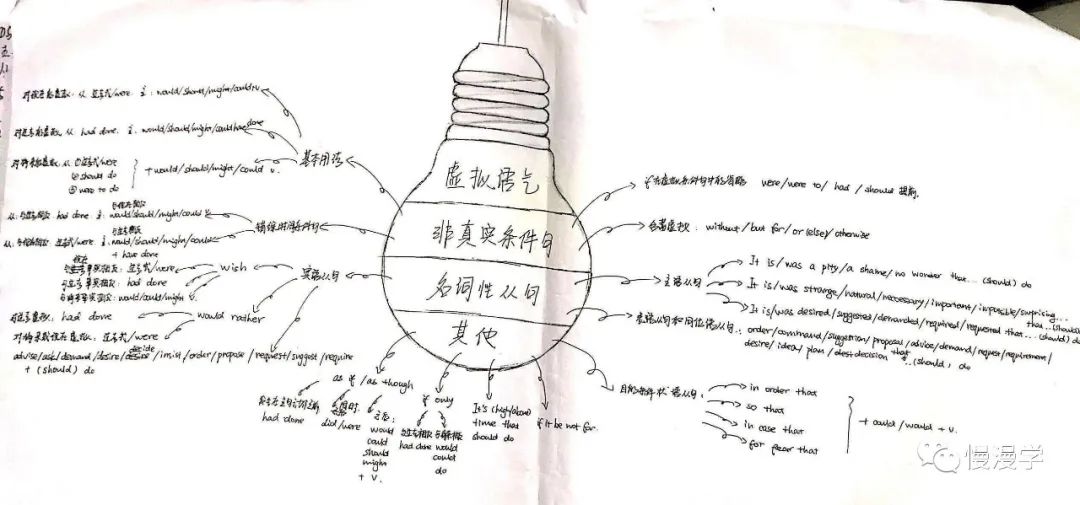 虚拟语气
非真实条件句
名词性从句
其他
基本用法
对现在的虚拟: 从 过去式/were. 主: would/should/might/could+v
对过去的虚拟, 从 had done. 主: would/should/might/could have done
对将来的虚拟: 从 ①过去式/were
②should do
③were to do
+would/should/might/could v.
错综时间条件句
与现在相反
从: 与过去相反: had done. 主: would/should/might/could
与过去相反
从: 与现在相反: 过去式/were. 主: would/should/might/could
+ have done
宾语从句
wish
现在
与过去事实相反: 过去式/were
与过去事实相反: had done
与将来事实相反: would/could/might v.
would rather
对过去虚拟, had done
对将来或现在虚拟, 过去式/were
decide
advise/ask/demand/desire/desire/insist/order/propose/request/suggest/require
+ (should) do
as if/as though
had done
同时:
did/were
之后:
would
could
should
might
+ v.
if only
与过去相反
had done
与将来相反
would
could
do
It's (high/about)
time that
should do
if it be not for.
非真实条件句中的省略 were/were to/ had / should 提前.
含蓄虚拟: without/but for/or (else)/otherwise
主语从句
It is/was a pity/a shame/no wonder that... (should) do
It is/was strange/natural/necessary/important/impossible/surprising...
that...(should) do
It is/was desired/suggested/demanded/required/requested that...(should) do
表语从句和同位语从句:
order/command/suggestion/proposal/advice/demand/request/requirement/
desire/idea/plan/decision that
...(should) do
目的条件状语从句:
in order that
so that
in case that
for fear that
+ could/would + v.
慢漫学